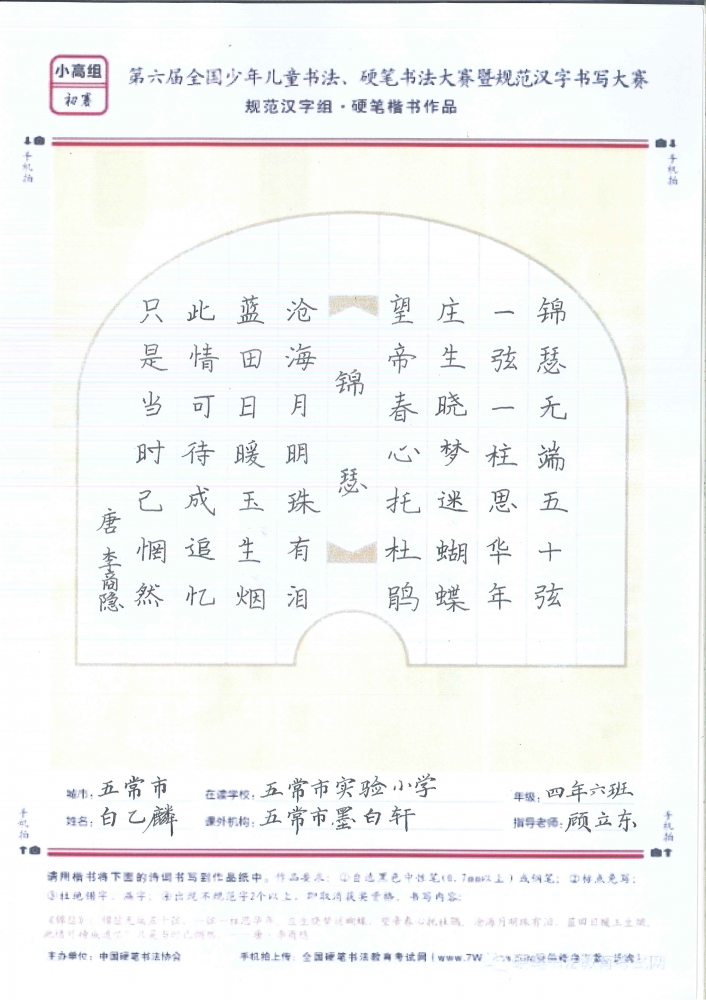 小高组
初赛
第六届全国少年儿童书法、硬笔书法大赛暨规范汉字书写大赛
规范汉字组·硬笔楷书作品
手机拍
手机拍
锦瑟无端五十弦
一弦一柱思华年
庄生晓梦迷蝴蝶
望帝春心托杜鹃
锦瑟
沧海月明珠有泪
蓝田日暖玉生烟
此情可待成追忆
只是当时已惘然
唐 李商隐
城市：五常市 在读学校：五常市实验小学 年级：四年六班
姓名：白乙麟 课外机构：五常市墨白轩 指导老师：顾立东
手机拍
手机拍
请用楷书将下面的诗词书写到作品纸中。作品要求：①自选黑色中性笔(0.7mm以上)或钢笔；②标点免写；
③杜绝错字、漏字；④出现不规范字2个以上，即取消获奖资格。书写内容：
《锦瑟》：锦瑟无端五十弦，一弦一柱思华年。庄生晓梦迷蝴蝶，望帝春心托杜鹃。沧海月明珠有泪，蓝田日暖玉生烟。
此情可待成追忆
主办单位：中国硬笔书法协会 手机拍上传：全国硬笔书法教育考试网(www.7W